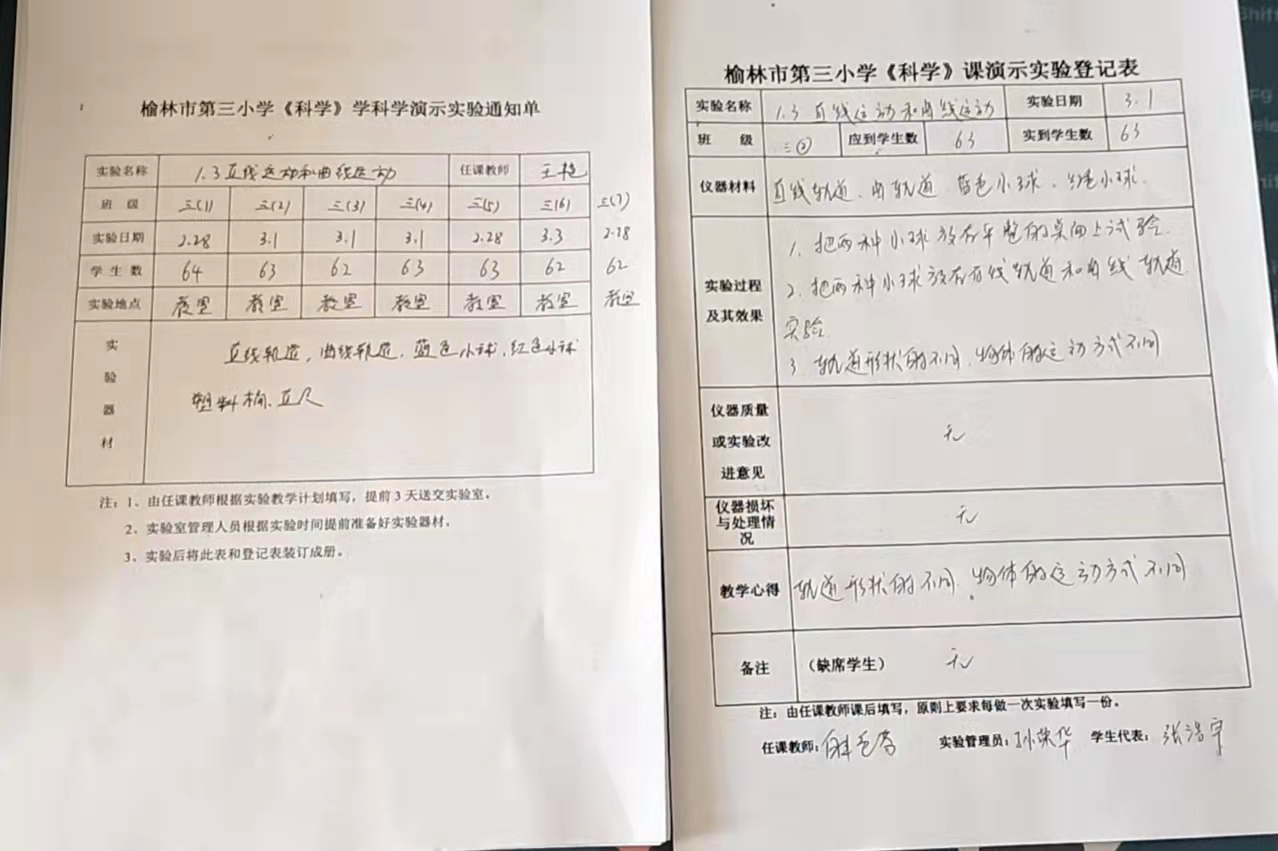 榆林市第三小学《科学》学科学演示实验通知单
实验名称 1.3直线运动和曲线运动 任课教师 王
班 级 三(1) 三(2) 三(3) 三(4) 三(5) 三(6) 三(7)
实验日期 2.28 3.1 3.1 3.1 2.28 3.3 2.28
学生数 64 63 62 63 63 62 62
实验地点 教室 教室 教室 教室 教室 教室 教室
实验器材 直线轨道，曲线轨道，蓝色小球，红色小球
塑料桶、直尺
注：1、由任课教师根据实验教学计划填写，提前3天送交实验室。
2、实验室管理人员根据实验时间提前准备好实验器材。
3、实验后将此表和登记表装订成册。
榆林市第三小学《科学》课演示实验登记表
实验名称 1.3 直线运动和曲线运动 实验日期 3.1
班 级 三② 应到学生数 63 实到学生数 63
仪器材料 直线轨道、曲轨道、蓝色小球、红色小球.
实验过程及其效果
1、把两种小球放在平整的桌面上试验.
2、把两种小球放在直线轨道和曲线轨道
实验
3、轨道形状的不同，物体的运动方式不同
仪器质量或实验改进意见 无
仪器损坏与处理情况 无
教学心得 轨道形状的不同，物体的运动方式不同
备注 （缺席学生） 无
注：由任课教师课后填写，原则上要求每做一次实验填写一份。
任课教师： 实验管理员：孙荣华 学生代表：张浩宇